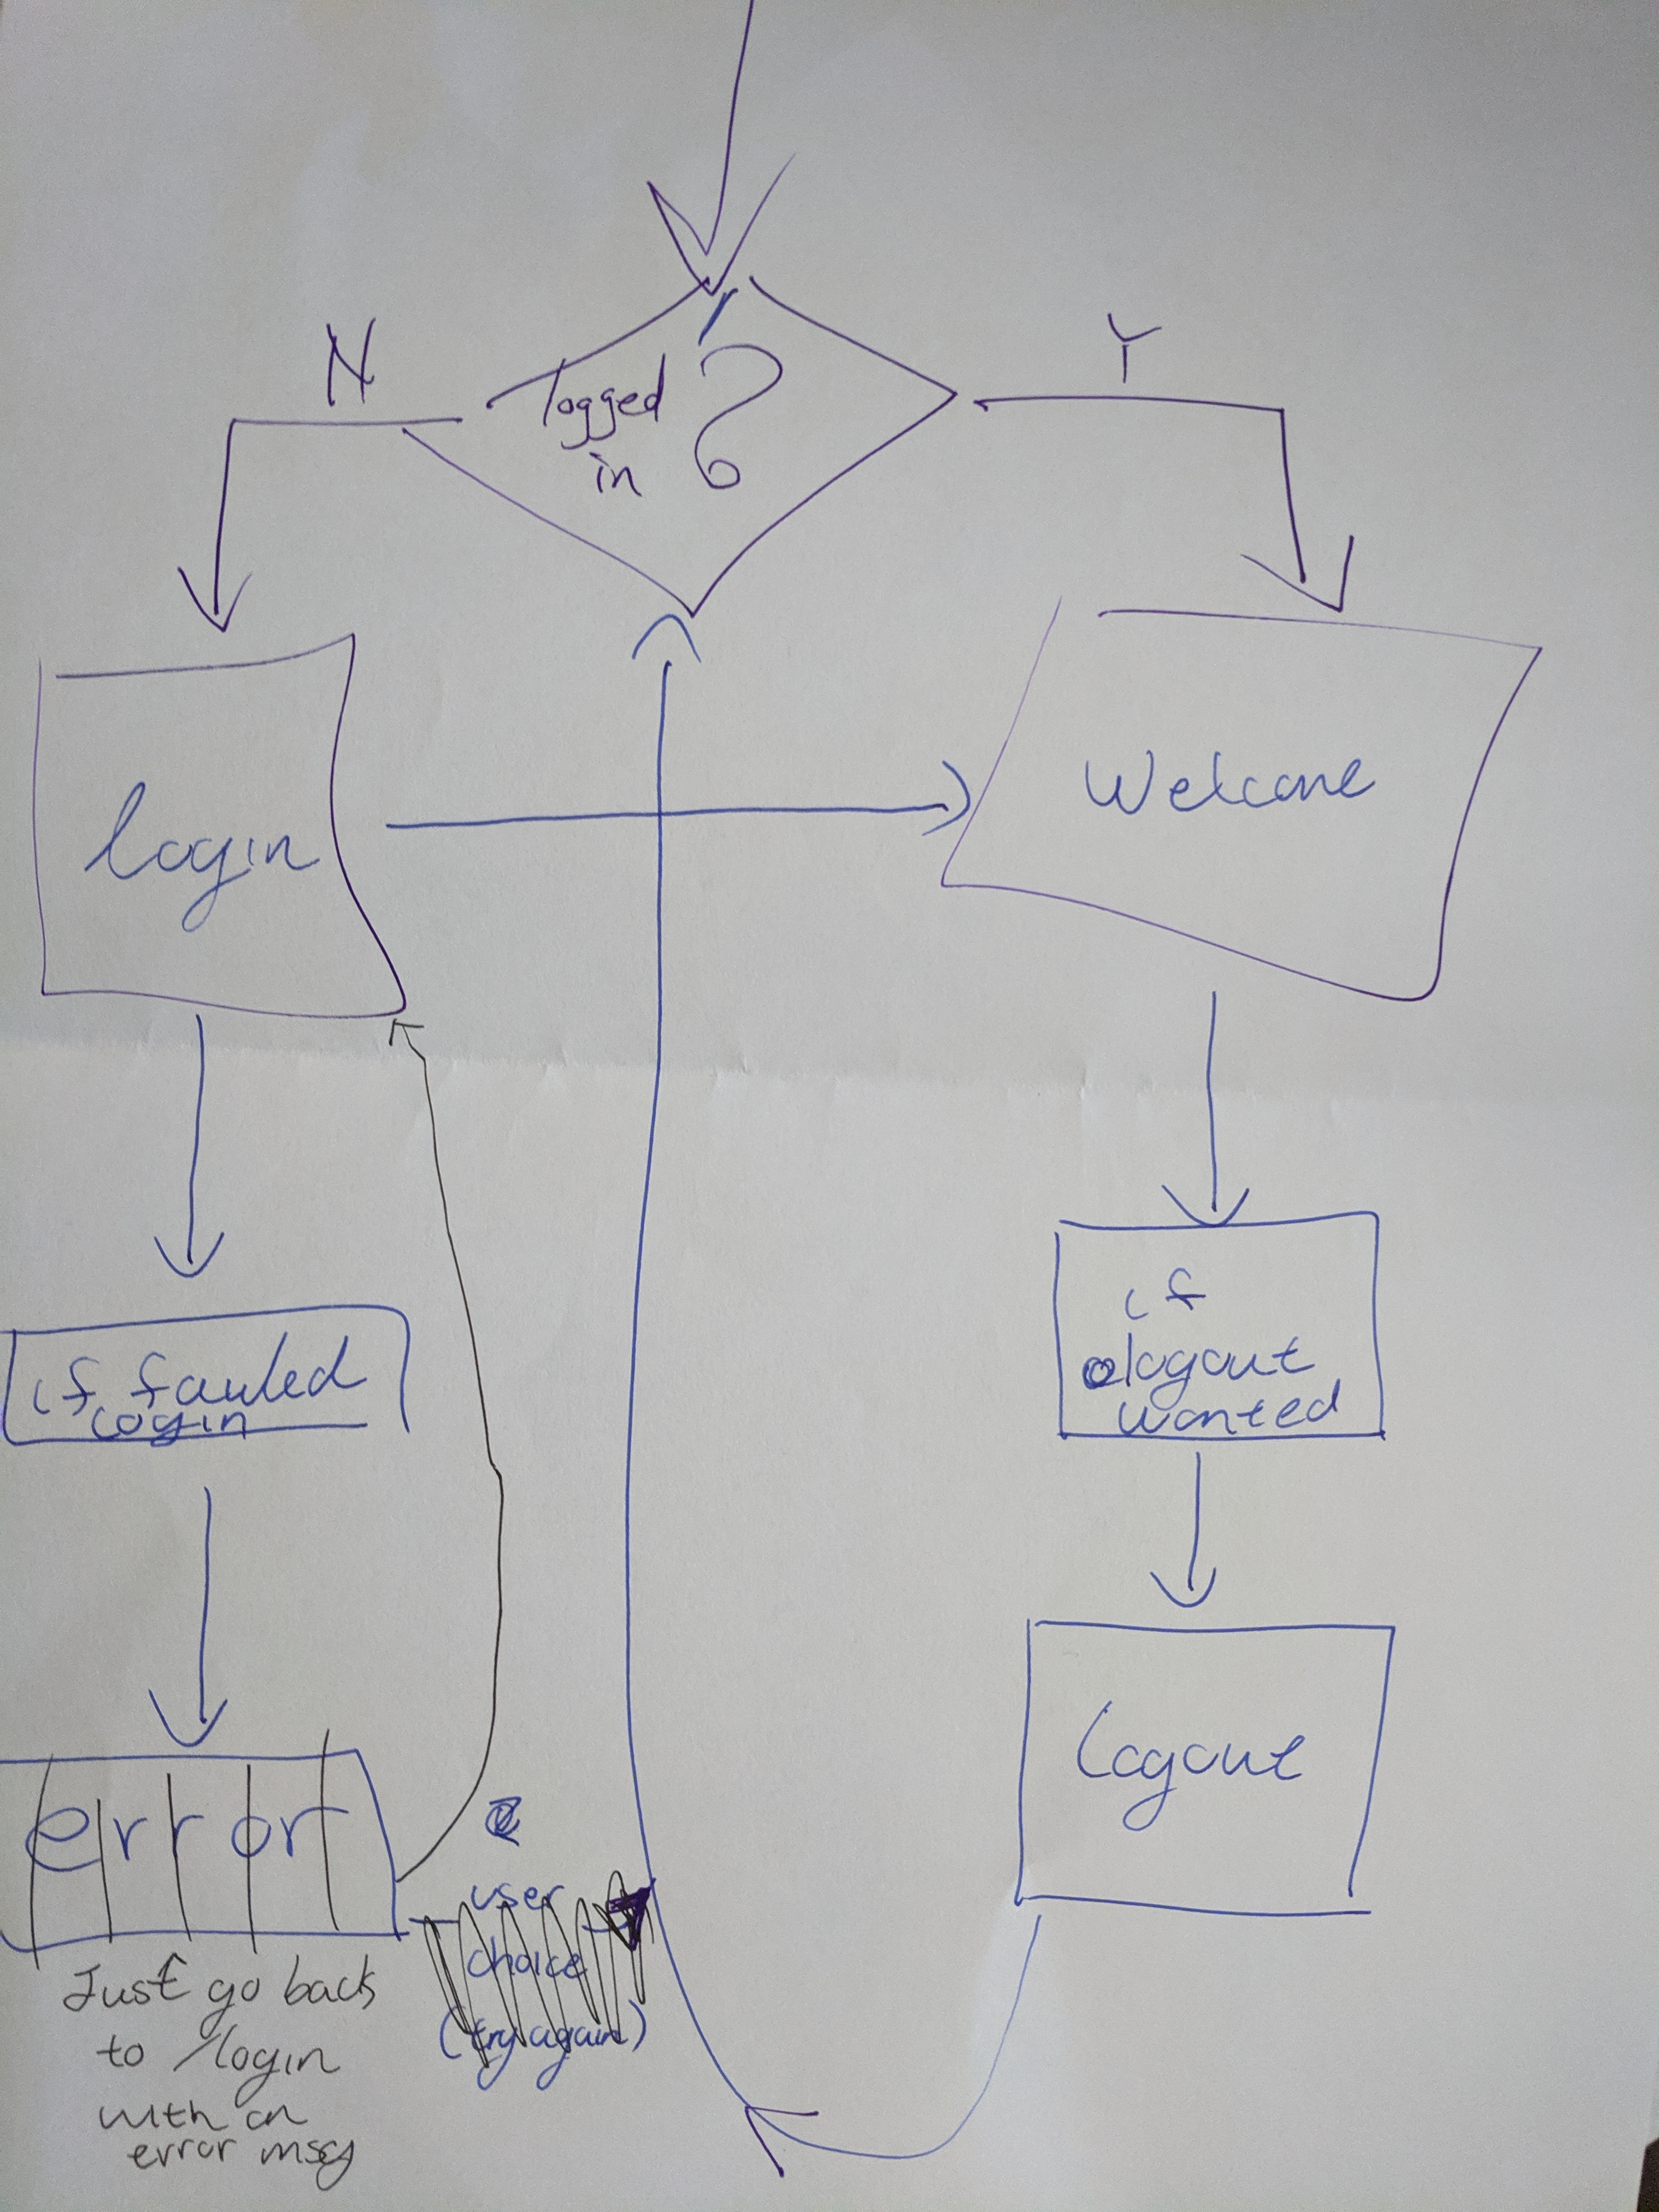 N
Y
logged
in ?
login
Welcome
if failed
login
if
logout
wanted
error
logout
user
choice
(try again)
Just go back
to /login
with an
error msg